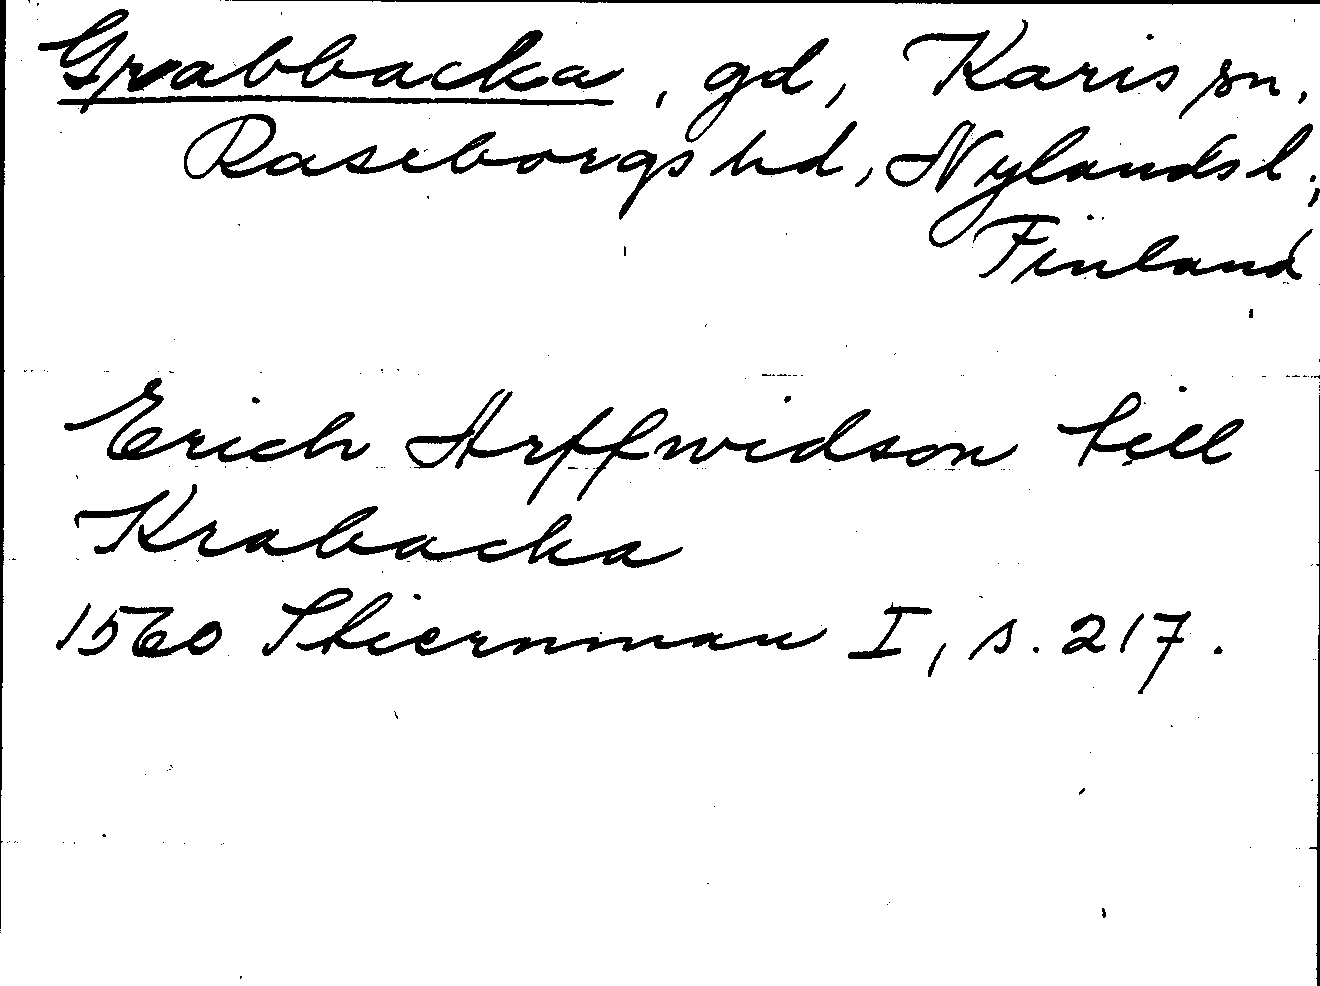 Grabbacka, gd, Karis sn,
Raseborgs hd, Nylands l;
Finland
Erich Arffwidson till
Krabacka
1560 Stiernman I, s. 217.